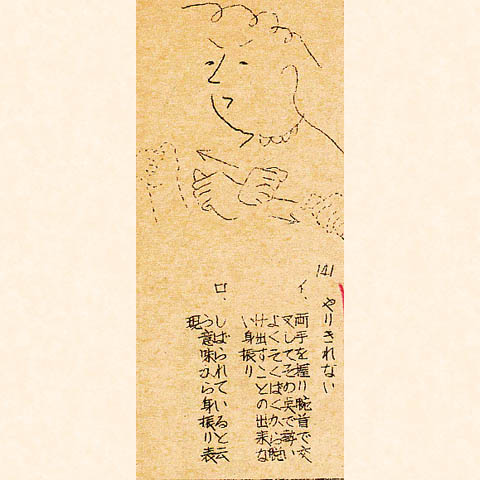 141
やりきれない
イ、両手を握り腕首で交
叉してその点で勢い
よくそくばくから脱
け出すことの出来な
い身振り
ロ、しばられていると云
う意味から身振り表
現